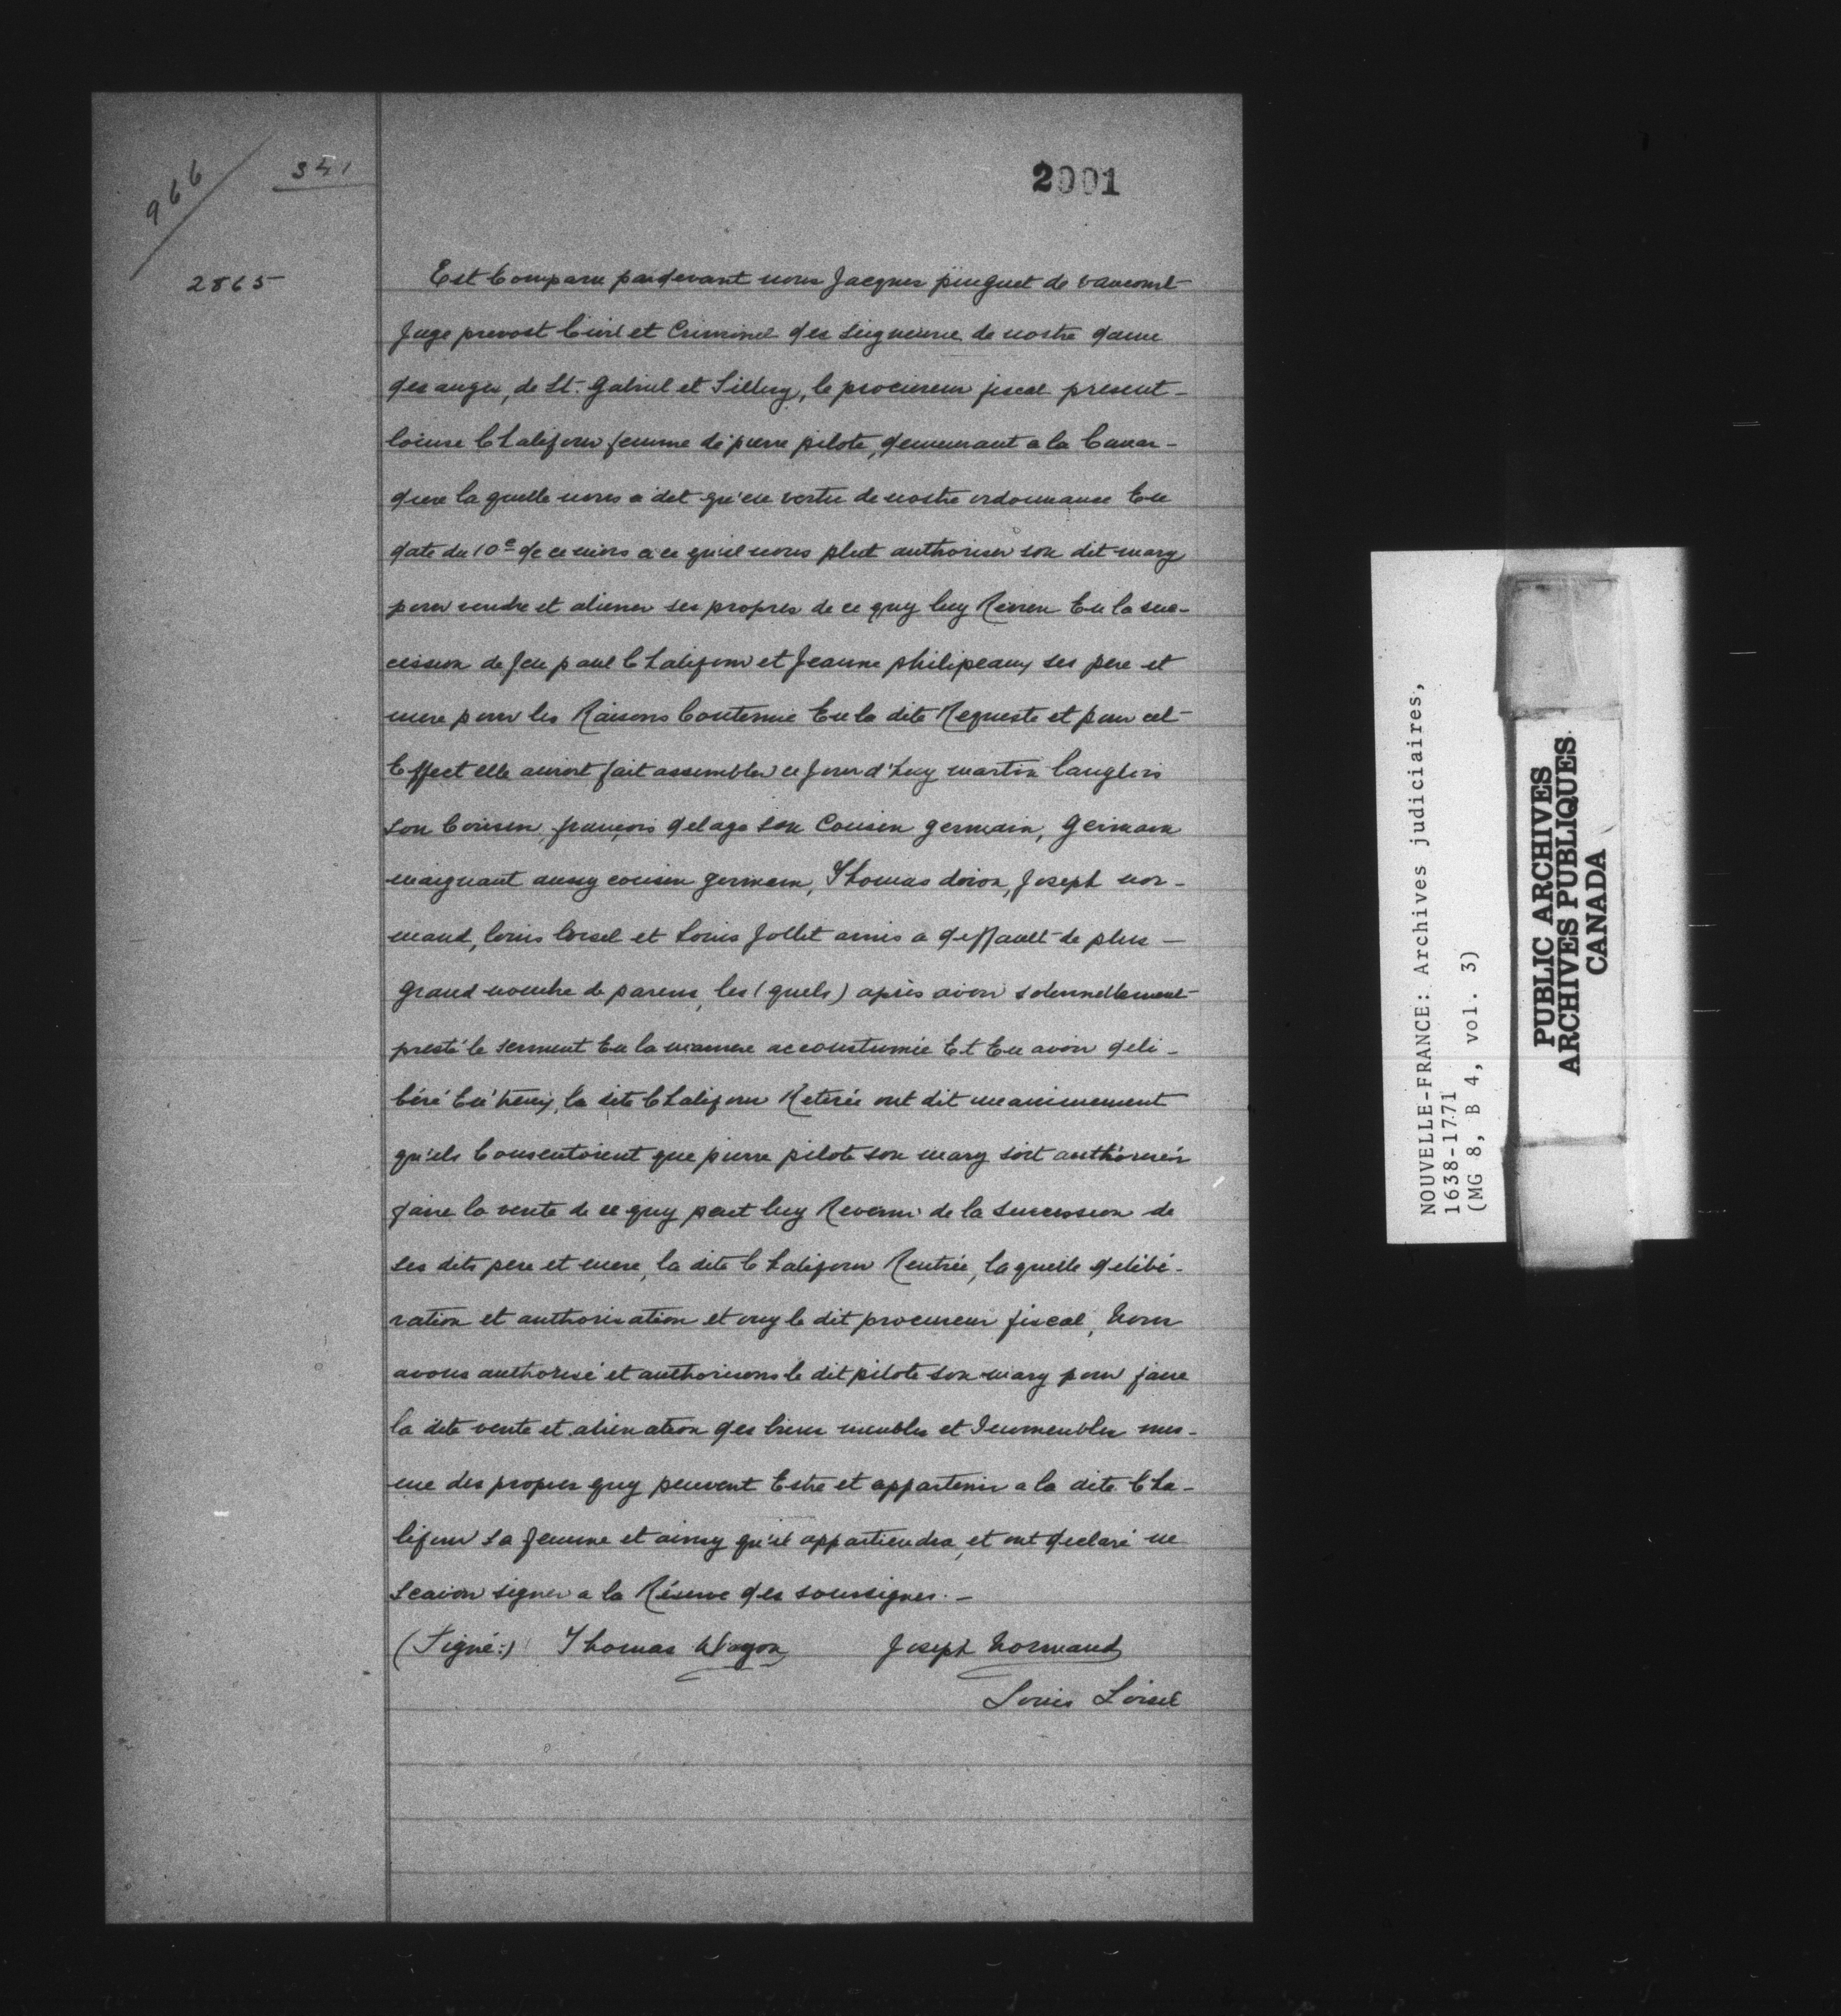 966
341
2001
2865
Est Comparu pardevant nous Jacques pinguet de vaucourt
Juge prevost Civil et Criminel des Seigneurie de nostre dame
des anges, de St. Gabriel et Sillery, le procureur fiscal present -
loüise Chalifour femme de pierre pilote, demeurant a la Canar-
diere laquelle nous a dit qu'en vertu de nostre ordonnance En
date du 10e de ce mois a ce qu'il nous plut authoriser son dit mary
pour vendre et aliener ses propres de ce quy luy Revien En la suc-
cession de feu paul Chalifour et Jeanne philipeaux ses pere et
mere pour les Raisons Contenue En la dite Requeste et pour cet
Effect elle auroit fait assembler ce jour d'huy martin langlois
son Cousin, françois delage son Cousin germain, Germain
maignant aussy cousin germain, Thomas doion, Joseph nor-
mand, louis loisel et Louis Jollet amis a deffault de plus -
grand nombre de parens, les (quels) après avoir solennellement
presté le serment En la maniere accoustumée Et En avoir deli-
béré En'treux, la dite Chalifour Retirée ont dit unanimement
qu'ils Consentoient que pierre pilote son mary soit authórisér
faire la vente de ce quy peut luy Revenir de la succession de
ses dits pere et mere, la dite Chalifour Rentrée, laquelle délibé-
ration et authorisation et ouy le dit procureur fiscal, Nous
avons authorisé et authorisons le dit pilote son mary pour faire
la dite vente et alienation des biens meubles et Immeubles mes-
me des propres quy peuvent Estre et appartenir a la dite Cha-
lifour sa femme et ainsy qu'il appartiendra, et ont declaré ne
scavoir signer a la Réserve des soussignes. -
(Signé:) Thomas Joseph Normand
Louis Loisel
NOUVELLE-FRANCE: Archives judiciaires,
1638-1771
(MG 8, B 4, vol. 3)
PUBLIC ARCHIVES
ARCHIVES PUBLIQUES
CANADA